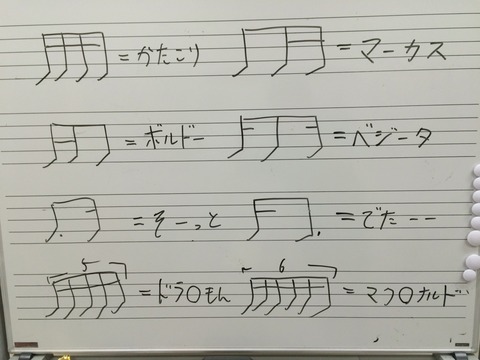 =かたこり =マーカス
=ボルドー =ベジータ
=そーっと =でたーー
5 =ドラ〇もん 6 =マク〇ナルド